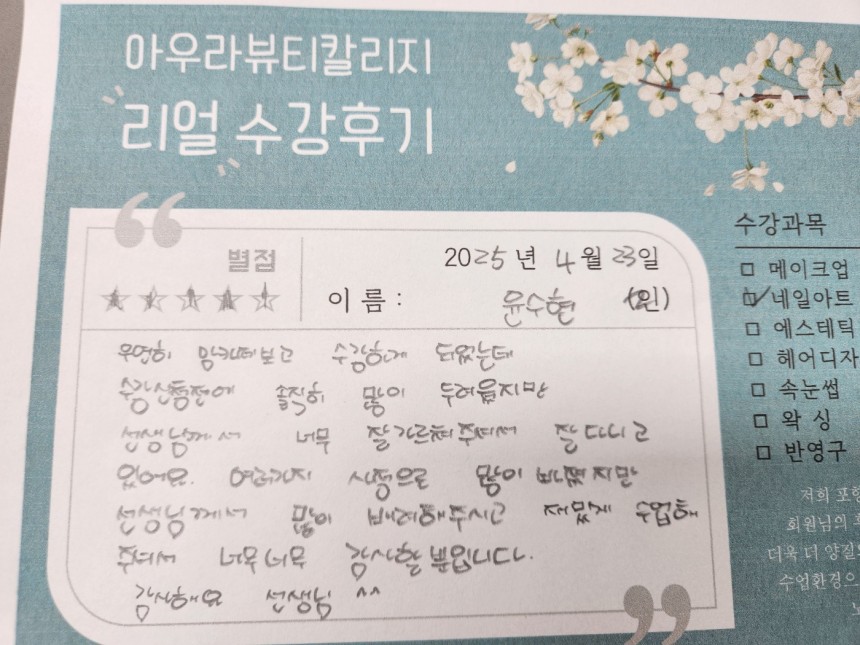 아우라뷰티칼리지
리얼 수강후기
별점
2025년 4월 23일
이 름 : 윤수현 (인)
우연히 맘카페보고 수강하게 되었는데
수강신청전에 솔직히 많이 두려웠지만
선생님께서 너무 잘가르쳐주셔서 잘 다니고
있어요. 여러가지 사정으로 많이 바빴지만
선생님께서 많이 배려해주시고 재밌게 수업해
주셔서 너무너무 감사할 뿐입니다.
감사해요 선생님 ^^
수강과목
메이크업
네일아트
에스테틱
헤어디자
속눈썹
왁 싱
반영구
저희 포
회원님의
더욱 더 양질
수업환경으
노